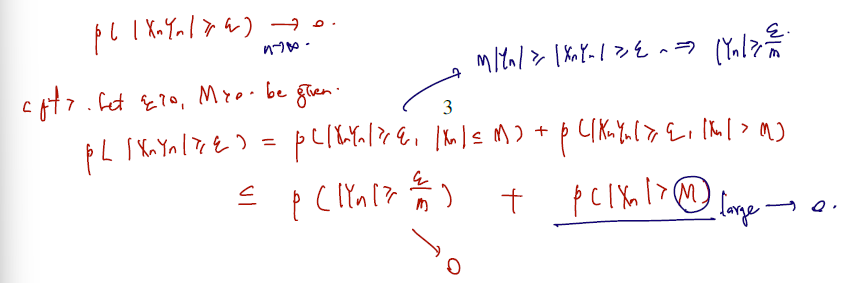 P(|XnYn| ≥ ε) → 0.
n→∞.
M|Yn| ≥ |XnYn| ≥ ε ⇒ |Yn| ≥ ε/m
<pf>. Let ε>0, M>0. be given.
3
P(|XnYn| ≥ ε) = P(|XnYn| ≥ ε, |Xn| ≤ M) + P(|XnYn| ≥ ε, |Xn| > M)
≤ P(|Yn| ≥ ε/m) + P(|Xn| > M) large → 0.
0